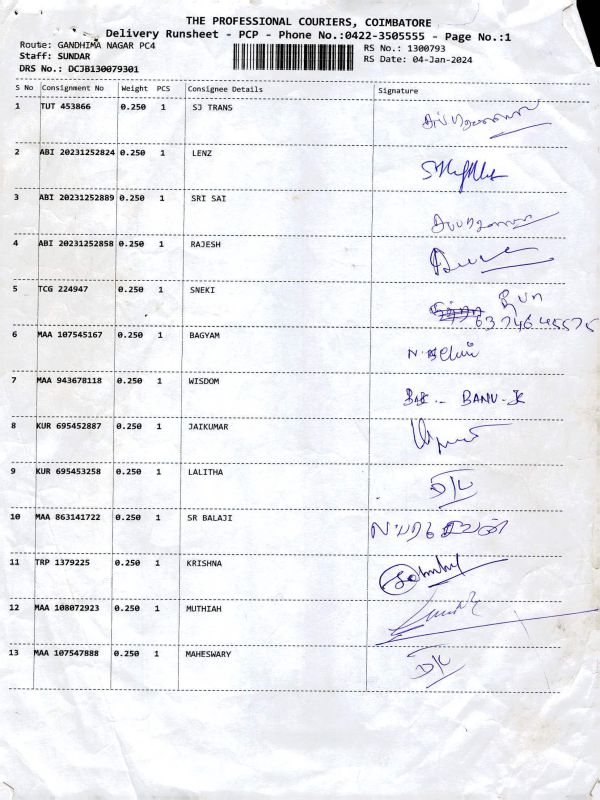 THE PROFESSIONAL COURIERS, COIMBATORE
Delivery Runsheet - PCP - Phone No.:0422-3505555 - Page No.:1
Route: GANDHIMA NAGAR PC4
RS No.: 1300793
Staff: SUNDAR
RS Date: 04-Jan-2024
DRS No.: DCJB130079301
S No Consignment No Weight PCS Consignee Details Signature
1 TUT 453866 0.250 1 SJ TRANS
2 ABI 20231252824 0.250 1 LENZ
3 ABI 20231252889 0.250 1 SRI SAI
4 ABI 20231252858 0.250 1 RAJESH
5 TCG 224947 0.250 1 SNEKI
6374645575
6 MAA 107545167 0.250 1 BAGYAM
7 MAA 943678118 0.250 1 WISDOM BANU-K
8 KUR 695452887 0.250 1 JAIKUMAR
9 KUR 695453258 0.250 1 LALITHA D/L
10 MAA 863141722 0.250 1 SR BALAJI
11 TRP 1379225 0.250 1 KRISHNA
12 MAA 108072923 0.250 1 MUTHIAH
13 MAA 107547888 0.250 1 MAHESWARY D/L